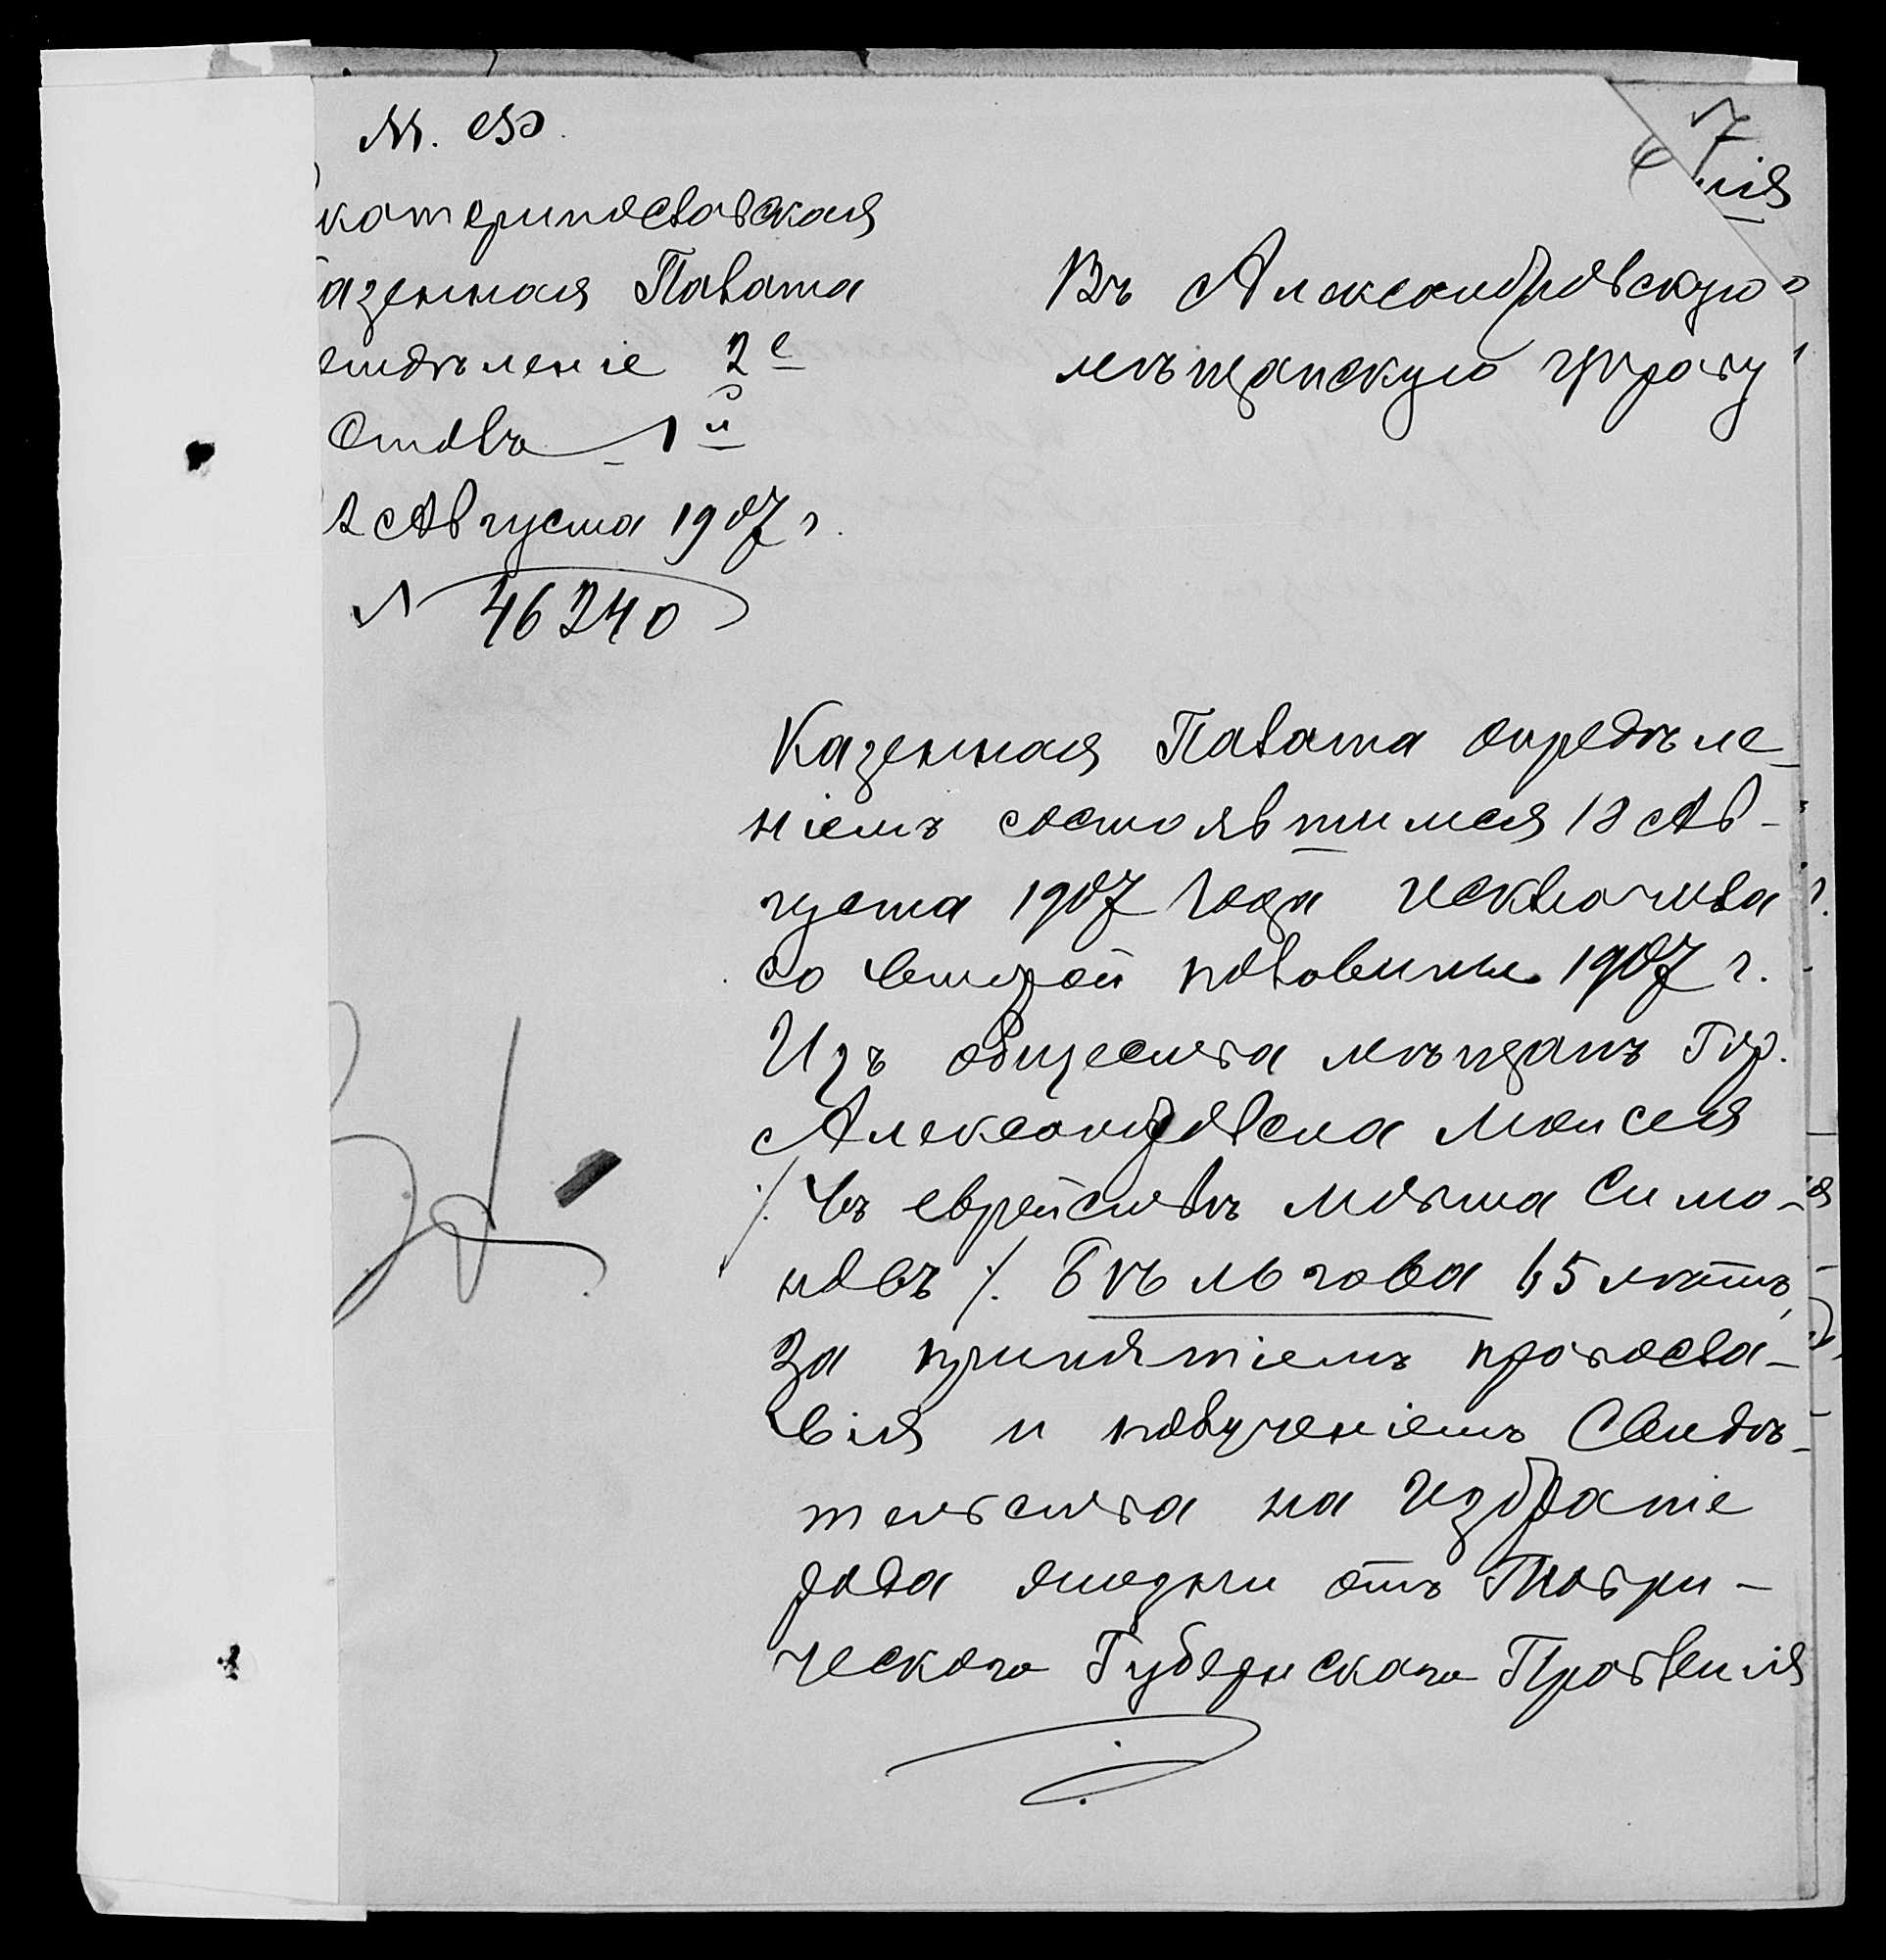 М. Ф.
7
катеринославская
азенная Палата
тдѣленіе 2е
Столъ 1й
2 Августа 1907 г.
№ 46240
Въ Александровскую
мѣщанскую управу
Казенная Палата опредѣле-
ніемъ состоявшимся 18 Ав-
густа 1907 года исключила
со второй половины 1907 г.
Изъ общества мѣщанъ гор.
Александровска Моисея
/. въ еврействѣ Мовша Симо-
новъ /. Бѣльгова 45 лѣтъ,
за принятіемъ правосла-
вія и полученіемъ Свидѣ-
тельства на избраніе
рода жизни отъ Таври-
ческаго Губернскаго Правленія